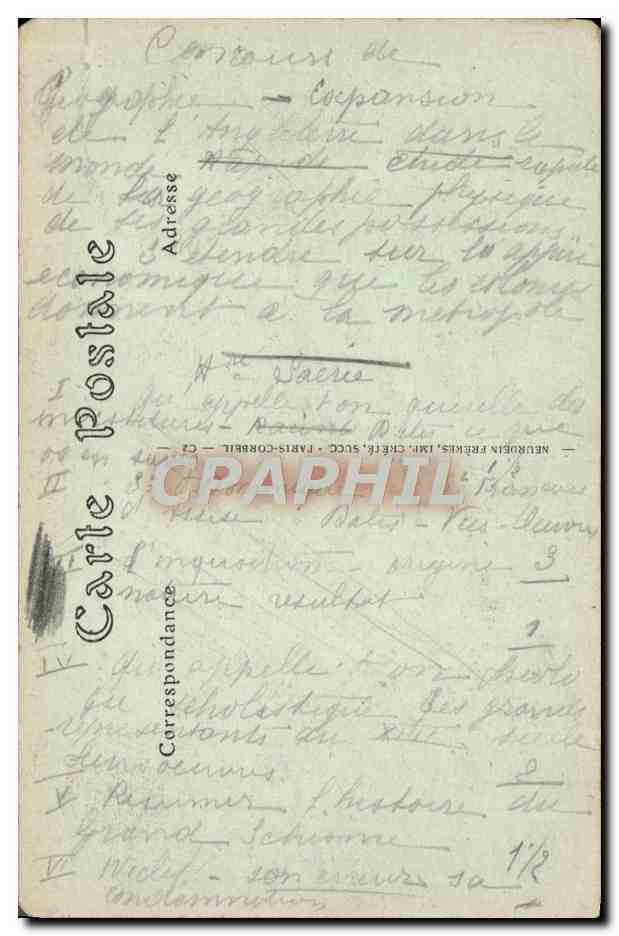 Concours de
Géographie - Expansion
de l'Angleterre dans le
monde étude rapide
de la géographie physique
de ses grandes possessions.
S'étendre sur l'appui
économique que les colonies
donnent à la métropole
Hre Sacrée
I qu'appelle t'on querelle des
investitures - Dates
II St François
d'Assise - Dates - Vies - Oeuvres
III L'inquisition - origine 3
nature résultat
1
IV Qu'appelle t'on philoso
phie scholastique Les grands
représentants du XIIIe siècle
Leurs oeuvres. 2
V Résumer l'histoire du
Grand Schisme
VI Wiclef - son erreur sa 1 1/2
condamnation
Carte Postale
Correspondance
Adresse
— NEURDEIN FRÈRES, IMP. CRÉTÉ, SUCC. - PARIS-CORBEIL. — C2 —
CPARPHIL